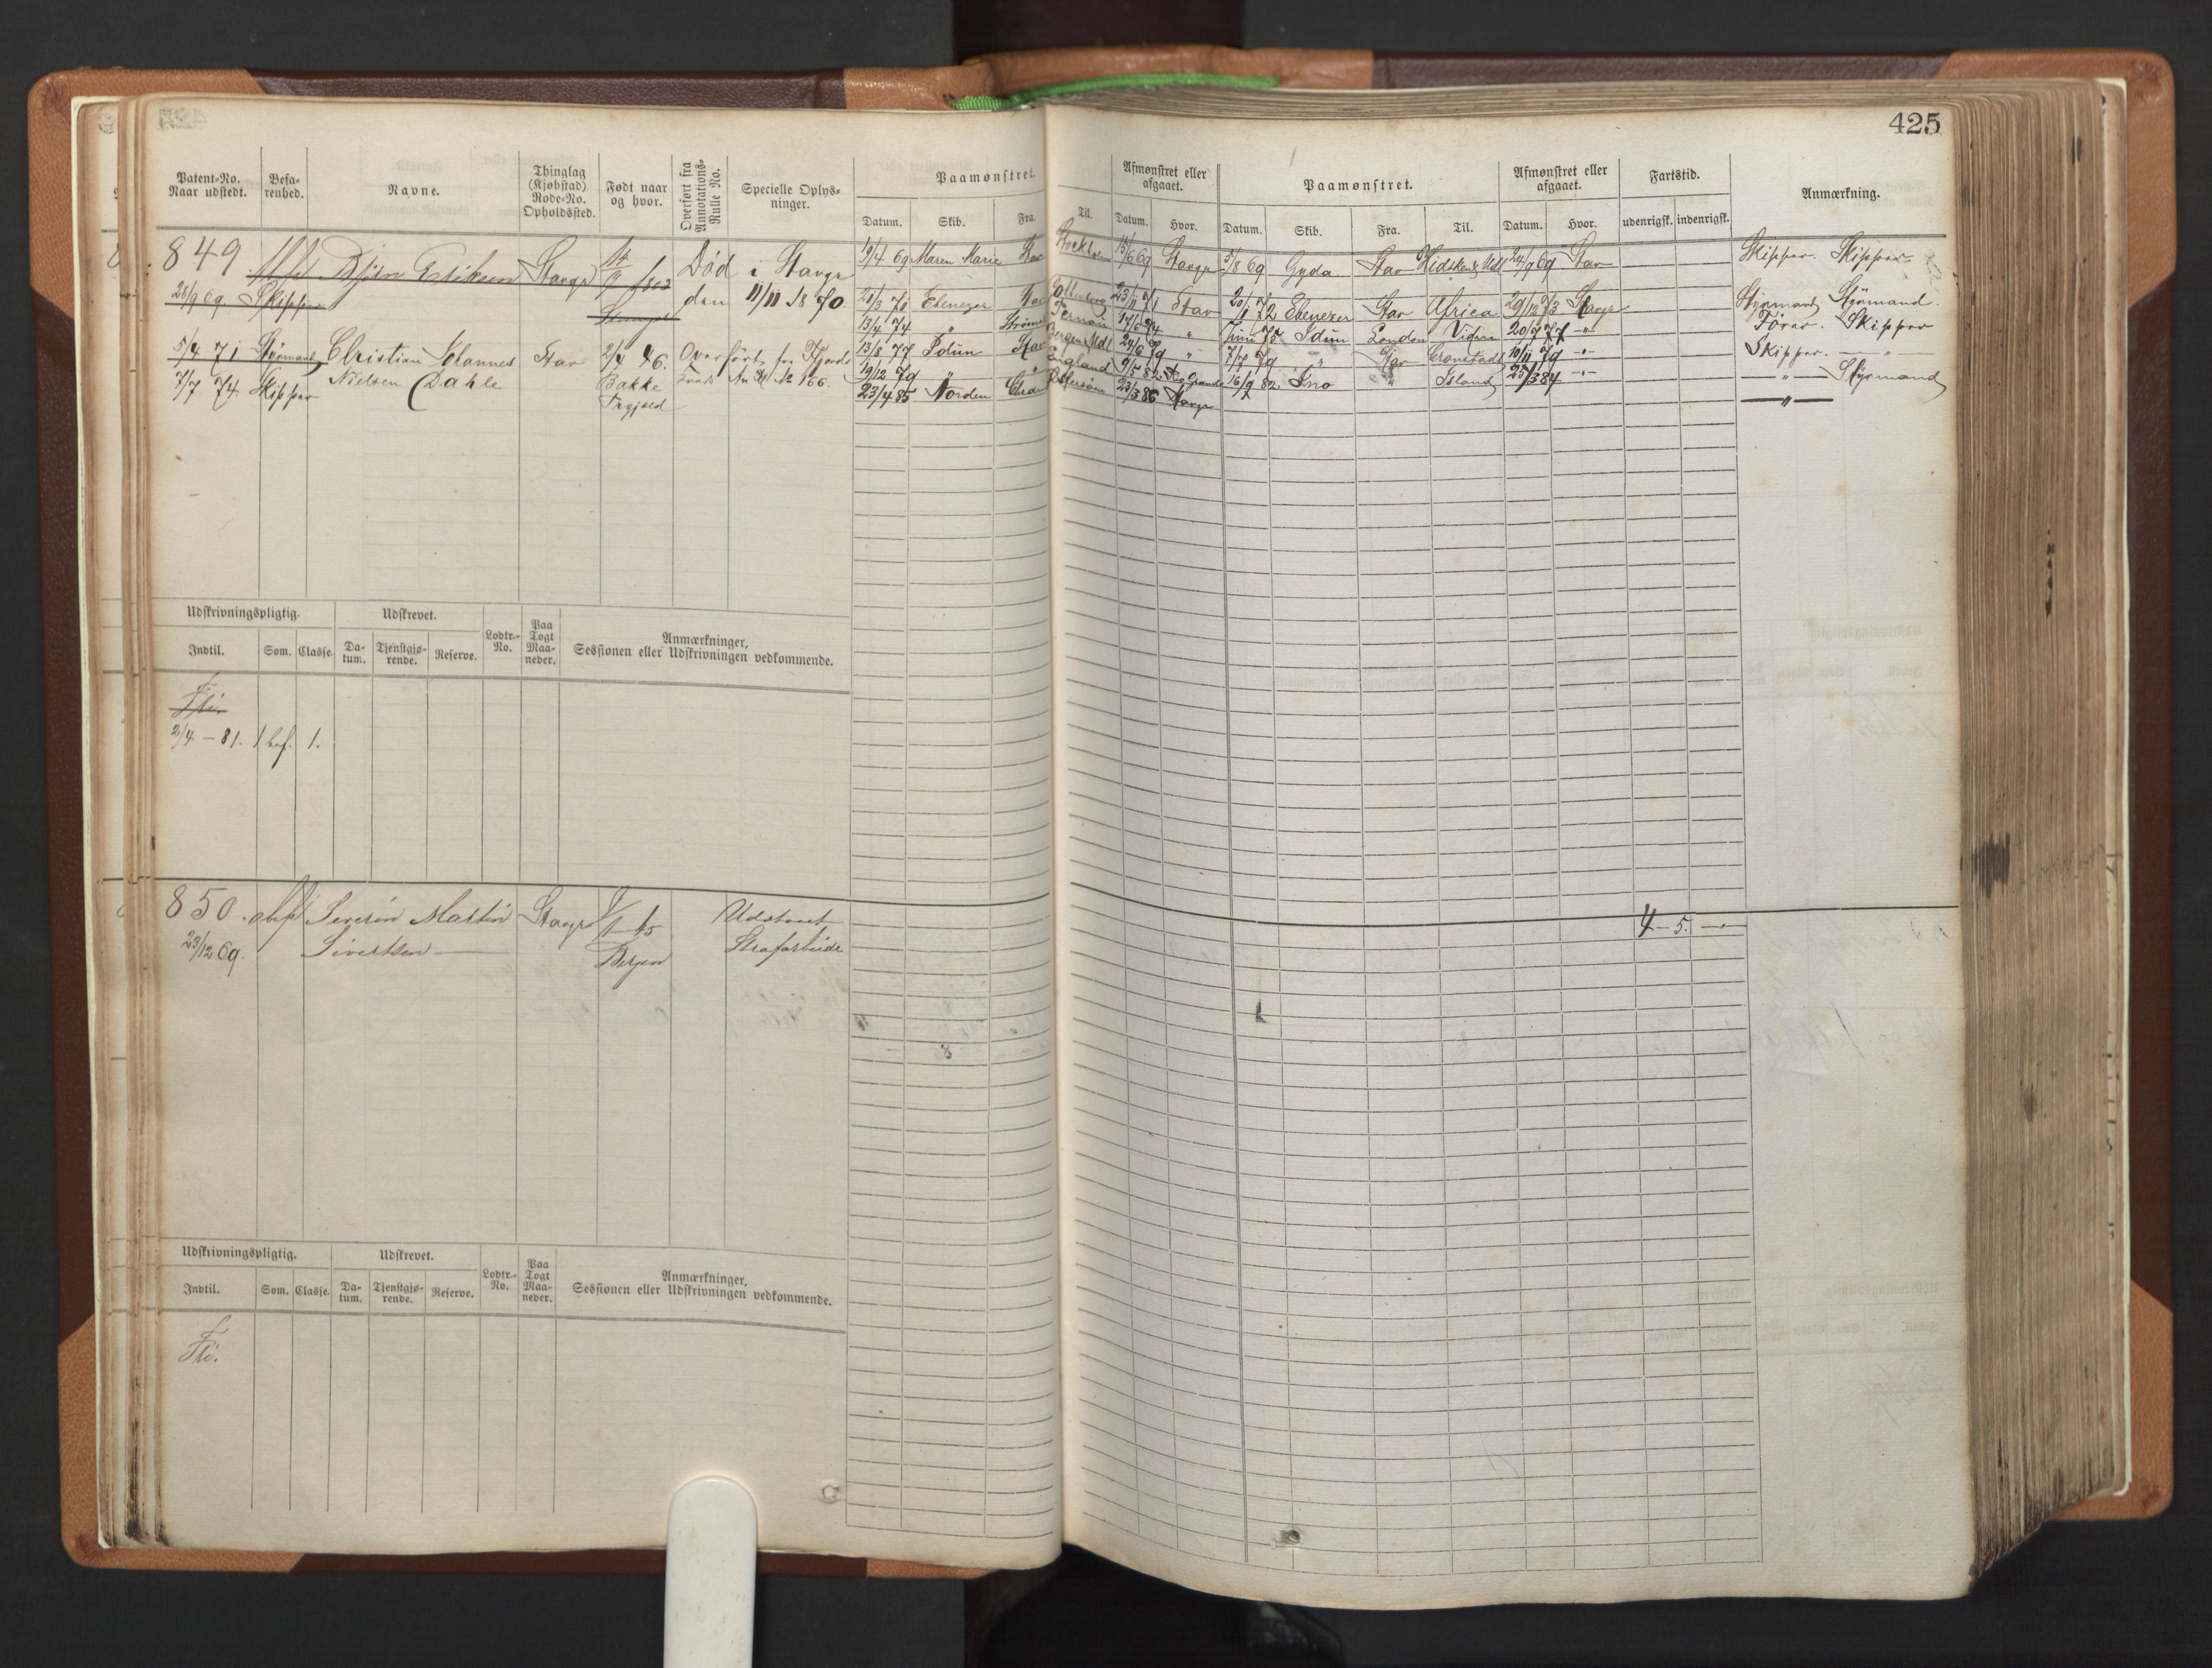 425
Patent-No. Naar udstedt.
Befarenhed.
Navne.
Thinglag (Kjøbstad) Rode-No. Opholdssted.
Født naar og hvor.
Overført fra Annotations-Rulle No.
Specielle Oplysninger.
Paamønstret.
Datum. Skib. Fra. Til.
Afmønstret eller afgaaet.
Datum. Hvor.
Paamønstret.
Datum. Skib. Fra. Til.
Afmønstret eller afgaaet.
Datum. Hvor.
Fartstid.
udenrigsk. indenrigsk.
Anmærkning.
849 Bjørn Eriksen Stavgr Død i Stavgr
28/9 69. Skipper den 11/11 1870
5/4 71 Styrmand Christian Johannes Stav 2/4 46. Overført fra Fjord
7/7 74 Skipper Nielsen Dahle Bakke No 166.
19/4 69 Maren Marie Stav 15/6 69 Stavgr 5/8 69 Gyda Stav 24/9 69 Stav Skipper. Skipper
Ebenezer Stav 23/11 71 Stav 20/1 72 Ebenezer Stav Africa 29/12 73 Stavgr Styrmand Styrmand.
13/4 74 " 17/6 74 " Juni 75 Idun London 20/7 77 -"- Fører. Skipper
13/8 77 Idun Stav 24/6 79 " 7/7 79 " Stav Cronstadt 10/11 79 -"- Skipper. -"-
19/12 79 " " England 82 Rio Grande 16/9 82 Ino " Island 25/3 84 -"- -"- Styrmand
23/4 85 Norden 23/3 86 Stavgr -"-
Udskrivningspligtig. Udskrevet. Lodtr.-No. Paa Togt Maaneder. Anmærkninger, Sessionen eller Udskrivningen vedkommende.
Indtil. Som. Classe. Datum. Tjenstgjørende. Reserve.
2/4 - 81. 1 bef. 1.
850. Severin Martin Stavgr Udstaaet 4 - 5. -"-
23/12 69. Sivertsen Bergen Strafarbeide
Udskrivningspligtig. Udskrevet. Lodtr.-No. Paa Togt Maaneder. Anmærkninger, Sessionen eller Udskrivningen vedkommende.
Indtil. Som. Classe. Datum. Tjenstgjørende. Reserve.